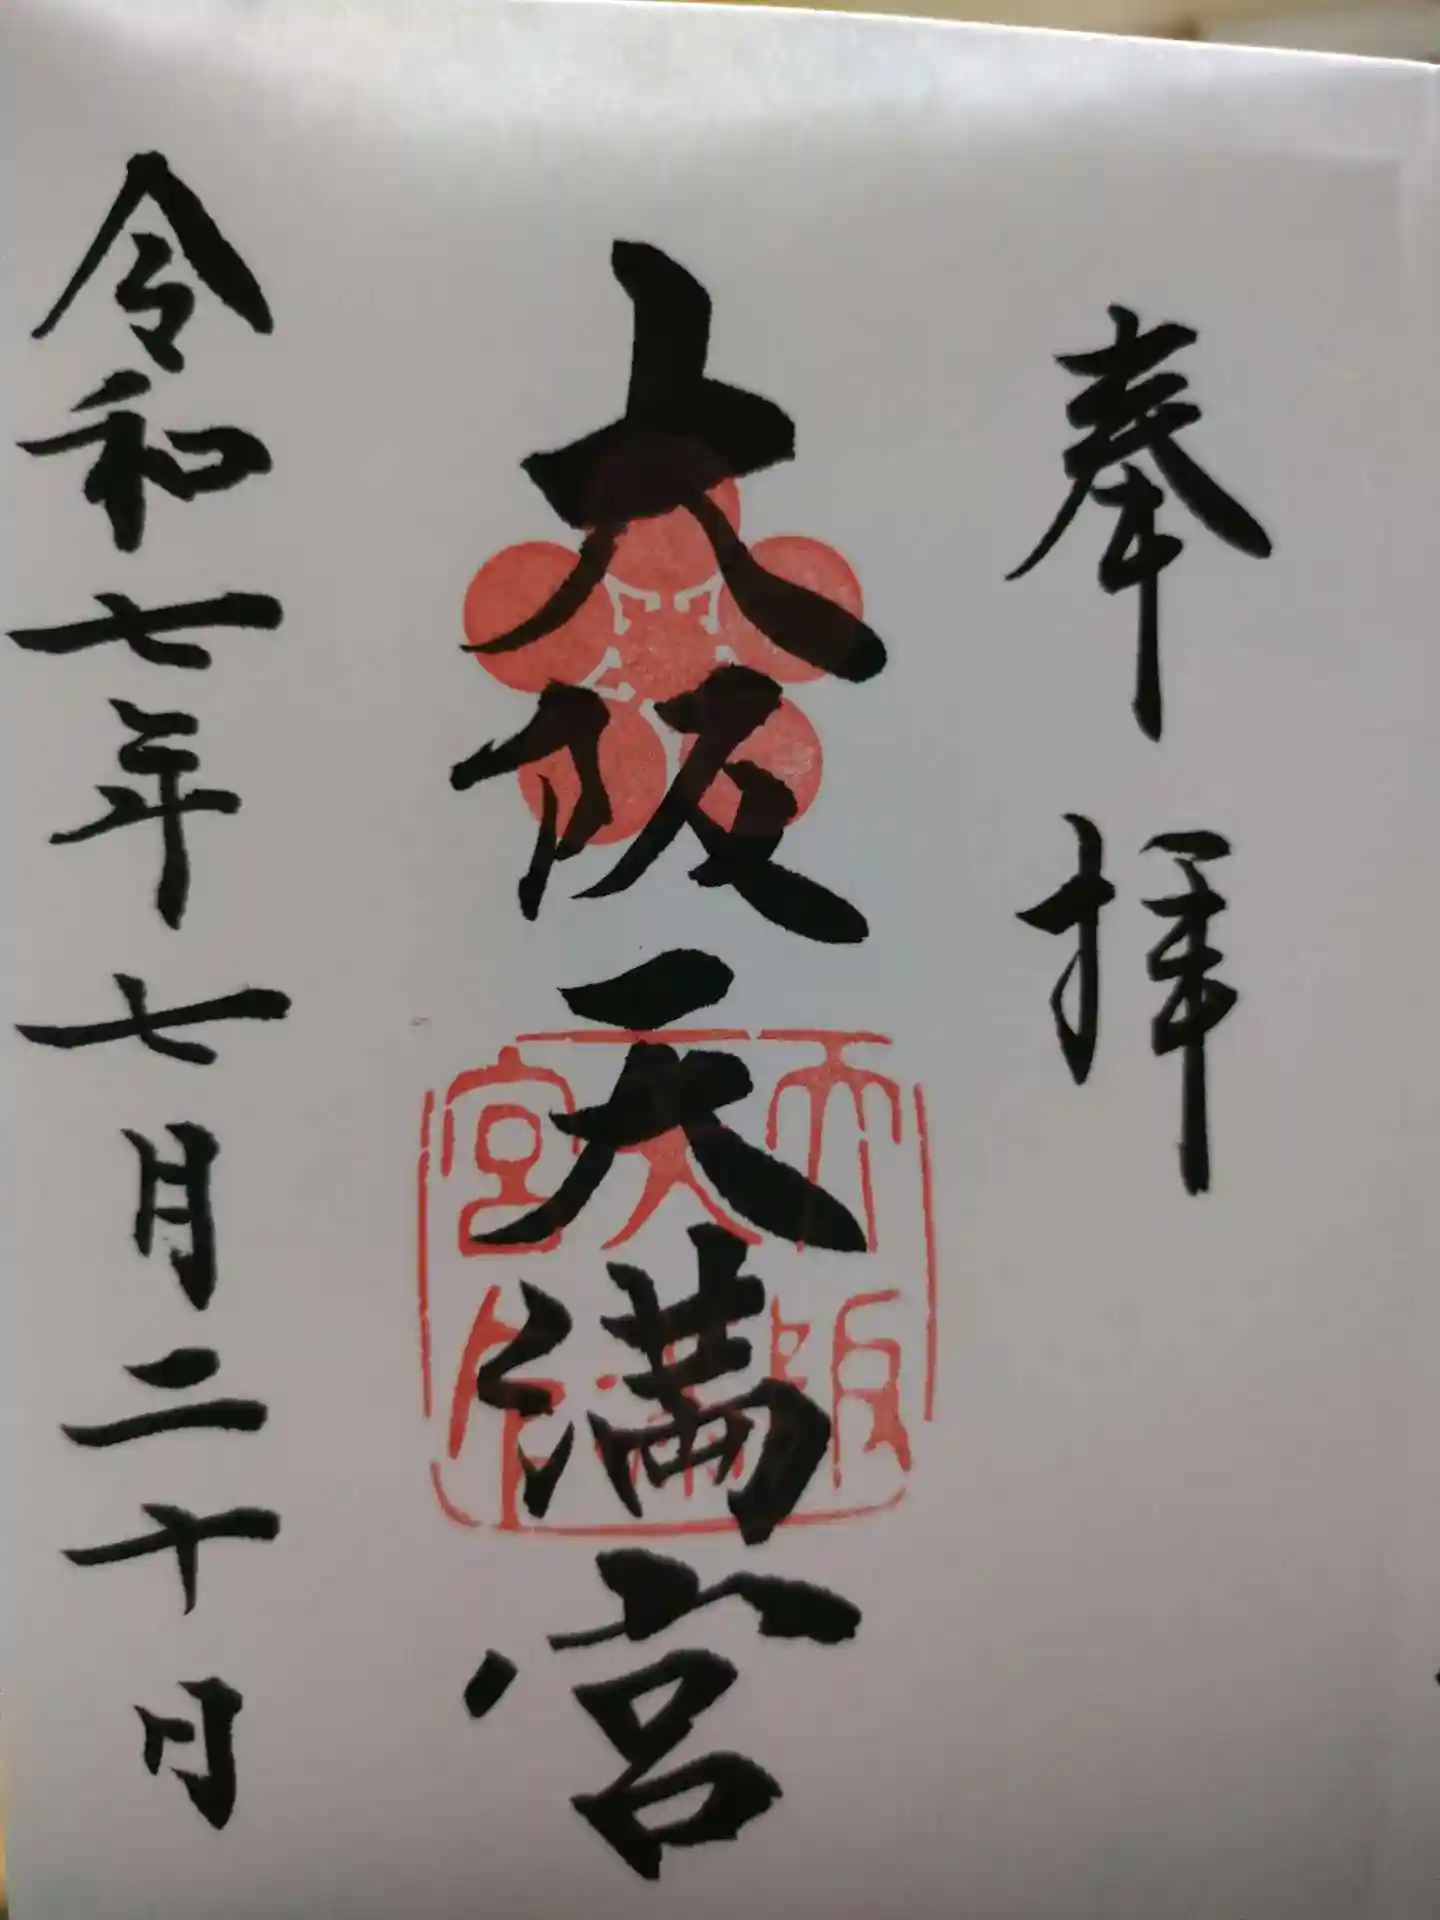 奉拝
大阪天満宮
大阪天満宮
令和七年七月二十日